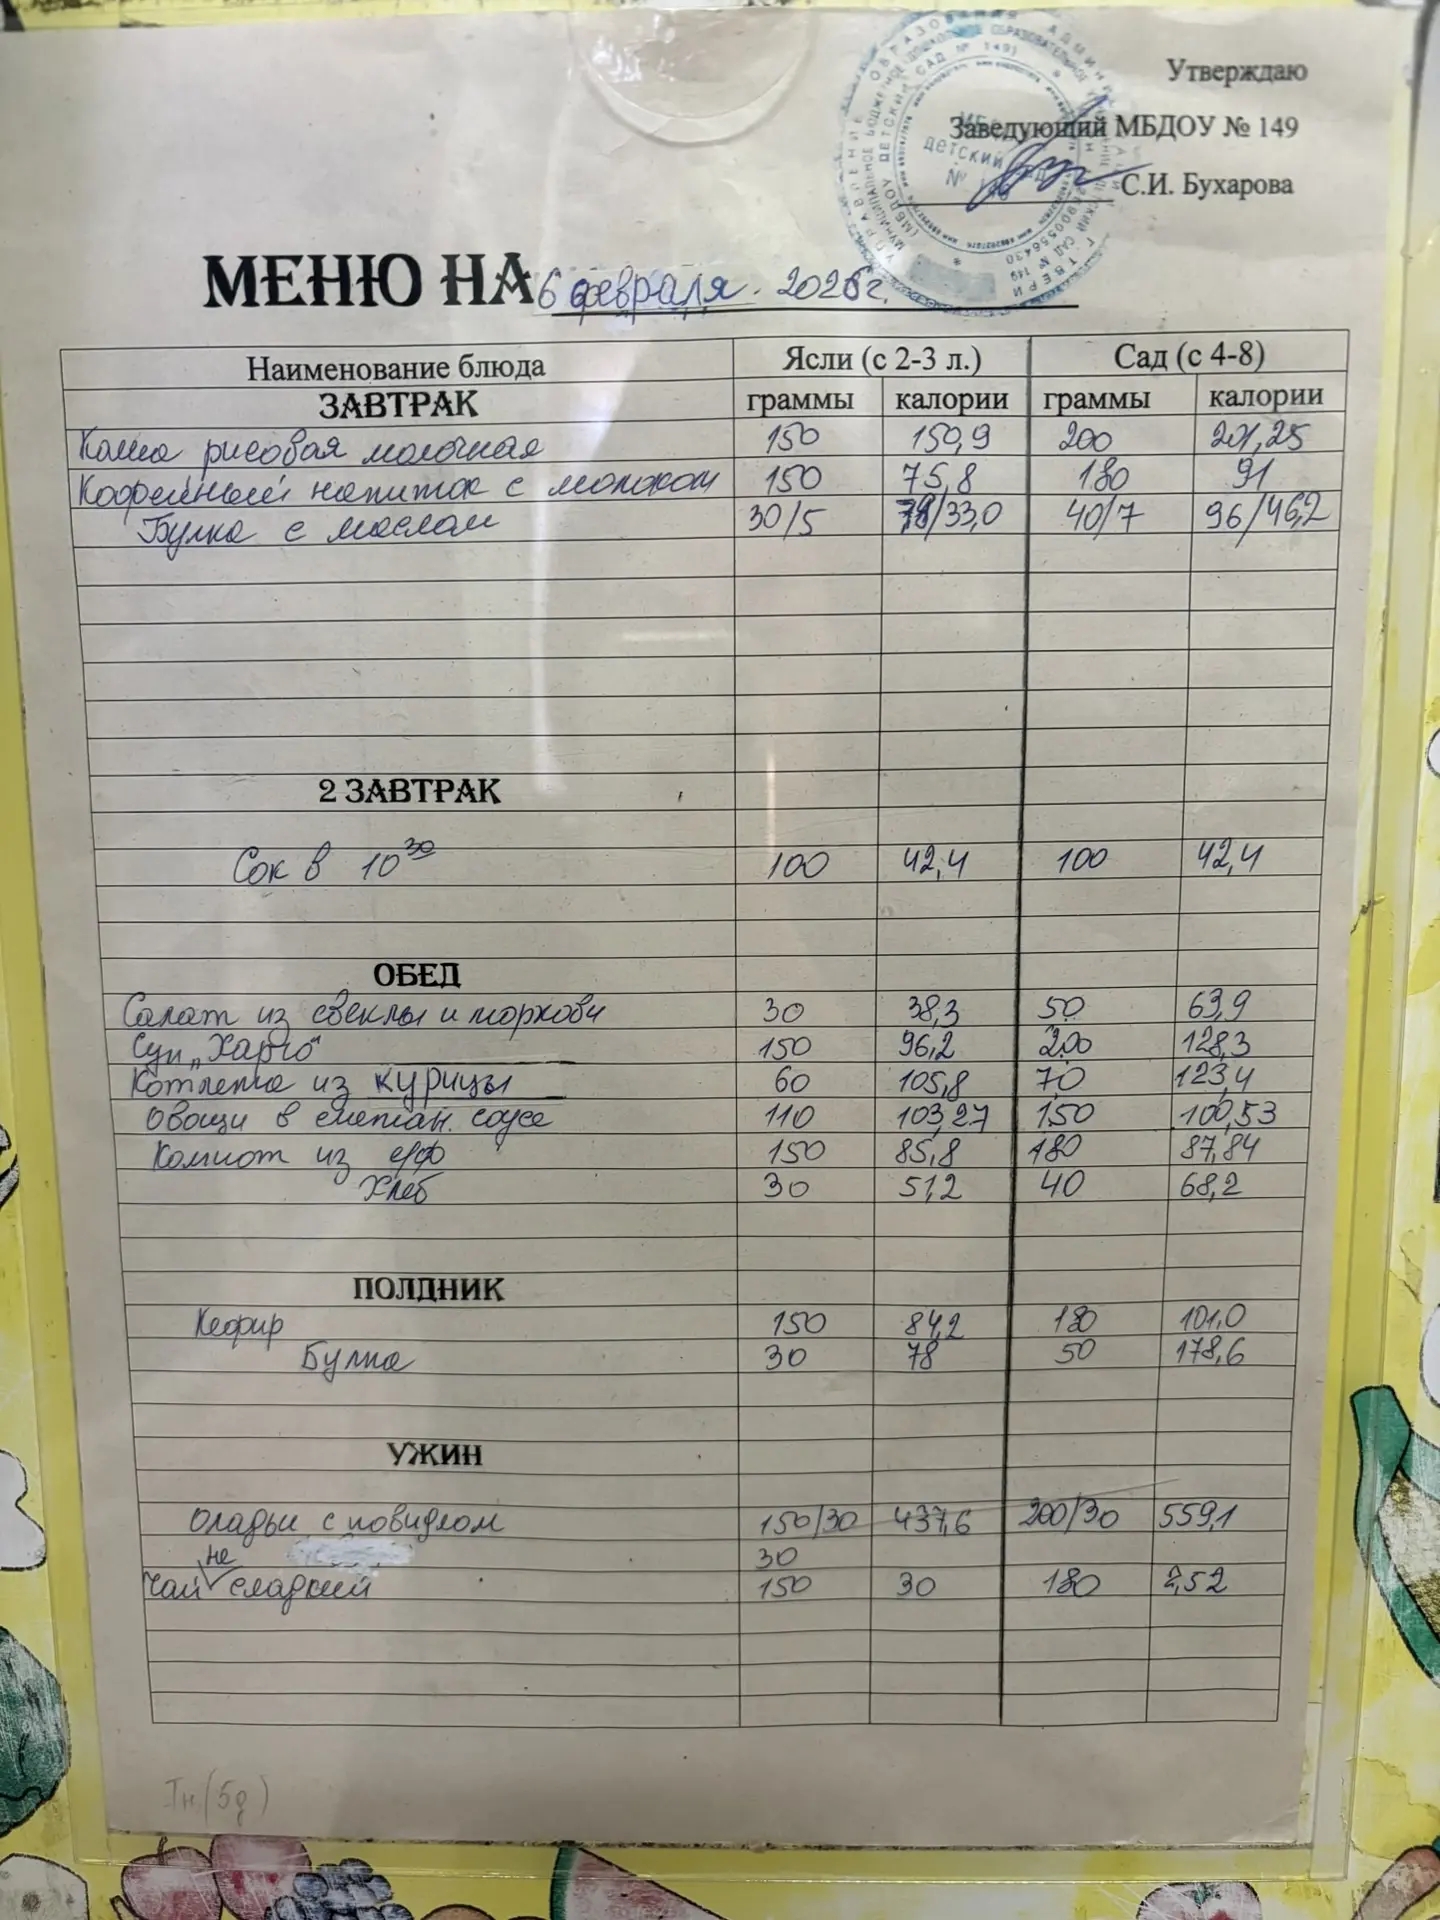 Утверждаю
Заведующий МБДОУ № 149
С.И. Бухарова
МЕНЮ НА 6 февраля. 2026 г.
Наименование блюда Ясли (с 2-3 л.) Сад (с 4-8)
ЗАВТРАК граммы калории граммы калории
Каша рисовая молочная 150 150,9 200 201,25
Кофейный напиток с молоком 150 75,8 180 91
Булка с маслом 30/5 78/33,0 40/7 96/46,2
2 ЗАВТРАК
Сок в 10 30 100 42,4 100 42,4
ОБЕД
Салат из свеклы и моркови 30 38,3 50 63,9
Суп „Харчо" 150 96,2 200 128,3
Котлета из курицы 60 105,8 70 123,4
Овощи в сметан. соусе 110 103,27 150 100,53
Компот из с/ф 150 85,8 180 87,84
Хлеб 30 51,2 40 68,2
ПОЛДНИК
Кефир 150 84,2 180 101,0
Булка 30 78 50 178,6
УЖИН
Оладьи с повидлом 150/30 437,6 200/30 559,1
30
Чай не сладкий 150 30 180 2,52
Iн (5д)